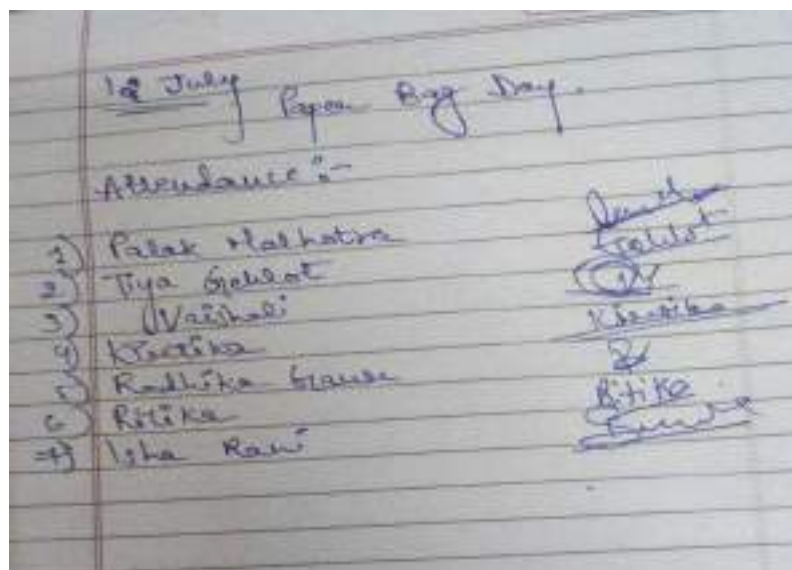 12 July Paper Bag Day.
Attendance :-
1) Palak Malhotra
2) Tiya Gehlot Gehlot
3) Vaishali
4) Kirtika Kirtika
5 Radhika
6 Ritika Ritika
7) Isha Rani